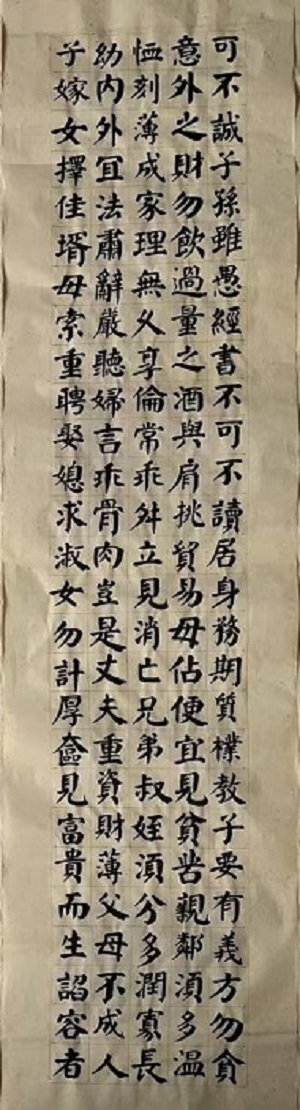 可不誠子孫雖愚經書不可不讀居身務期質樸教子要有義方勿貪
意外之財勿飲過量之酒與肩挑貿易毋佔便宜見貧苦親鄰湏多溫
恤刻薄成家理無久享倫常乖舛立見消亡兄弟叔姪湏分多潤寡長
幼內外冝法肅辭嚴聽婦言乖骨肉豈是丈夫重資財薄父母不成人
子嫁女擇佳壻毋索重聘娶媳求淑女勿計厚奩見富貴而生諂容者